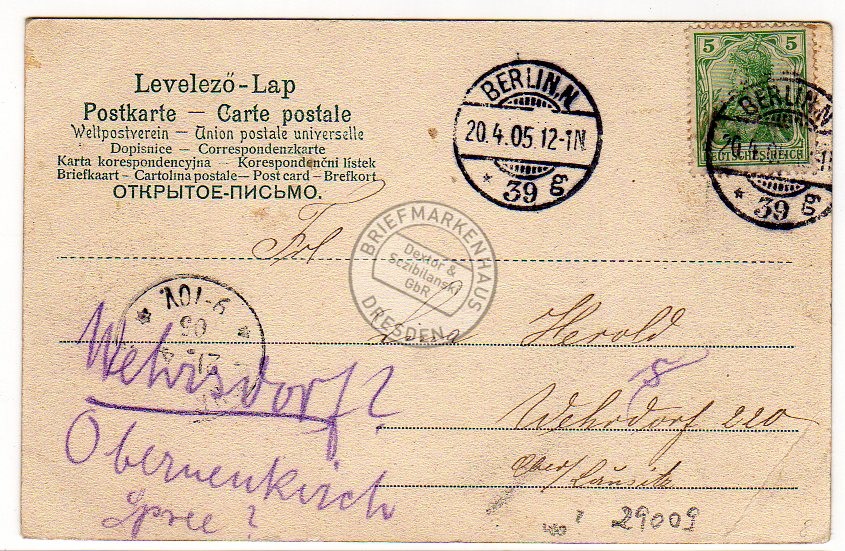 Levelező-Lap
Postkarte — Carte postale
Weltpostverein — Union postale universelle
Dopisnice — Correspondenzkarte
Karta korespondencyjna — Korespondenční lístek
Briefkaart — Cartolina postale — Post card — Brefkort
ОТКРЫТОЕ-ПИСЬМО.
BERLIN.N.
20.4.05.12-1N
* 39 g
5 5
DEUTSCHES REICH
BERLIN.N.
20.4.05
* 39 g
BRIEFMARKENHAUS
Dextor &
Sczibilanski
GbR
DRESDEN
Frl
Herold
Wehrdorf 220
Ober/Lausitz
9-10V.
05
21. 4
Wehrsdorf?
Oberneukirch
Spree?
29009